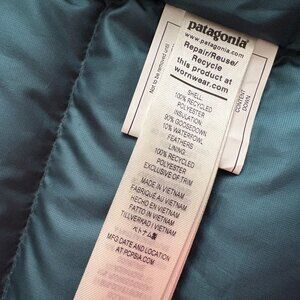 patagonia®
www.patagonia.com
Repair/Reuse/
Recycle
this product at
wornwear.com
Not to be removed until
CONVENT
DOWN
SHELL:
100% RECYCLED
POLYESTER
INSULATION:
90% GOOSEDOWN
10% WATERFOWL
FEATHERS
LINING:
100% RECYCLED
POLYESTER
EXCLUSIVE OF TRIM
MADE IN VIETNAM
FABRIQUÉ AU VIETNAM
HECHO EN VIETNAM
FATTO IN VIETNAM
TILLVERKAD I VIETNAM
ベトナム製
MFG DATE AND LOCATION
AT PCPSIA.COM